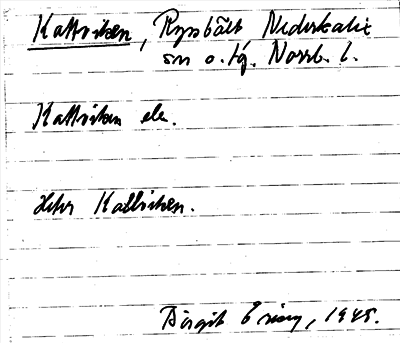 Kattviken, Rysbält Nederkalix
sn o. tg. Norrb. l.
Kattviken ek.
Kattviken.
Birgit 1945.